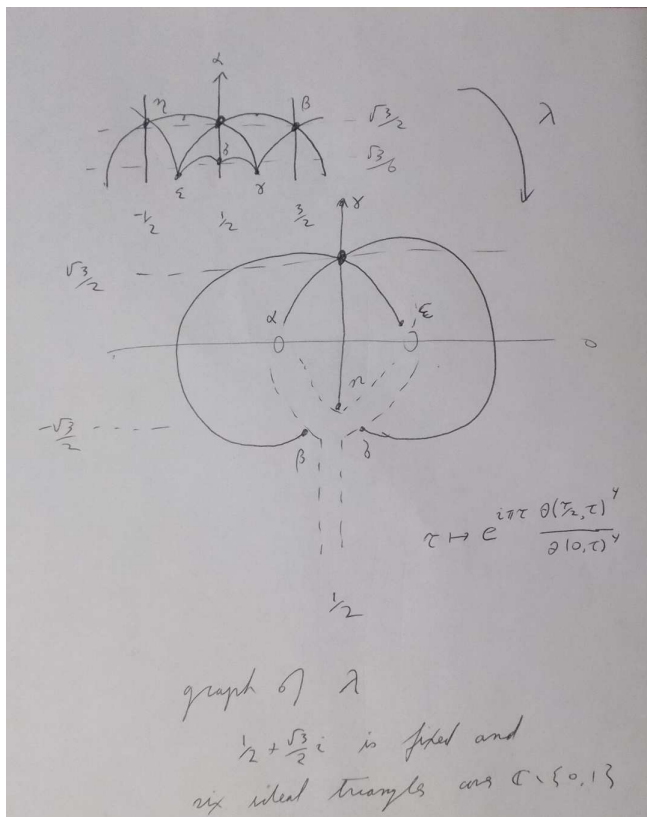 α
η
β
√3/2
λ
δ
√3/6
ε
γ
-1/2
1/2
3/2
γ
√3/2
α
ε
0
η
-√3/2
β
δ
τ ↦ e^{iπτ} θ(τ/2,τ)^4 / θ(0,τ)^4
1/2
graph of λ
1/2 + √3/2 i is fixed and
six ideal triangles are ℂ∖{0,1}